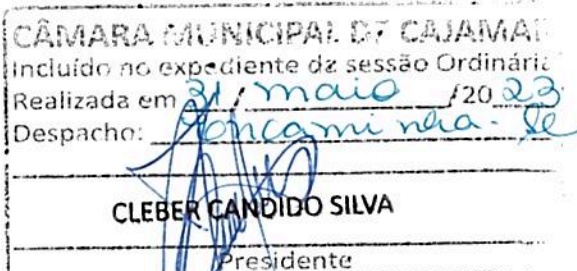 CÂMARA MUNICIPAL DE CAJAMAR
Incluído no expediente da sessão Ordinária
Realizada em 31 / maio /20 23
Despacho: Encaminha - se
CLEBER CANDIDO SILVA
Presidente